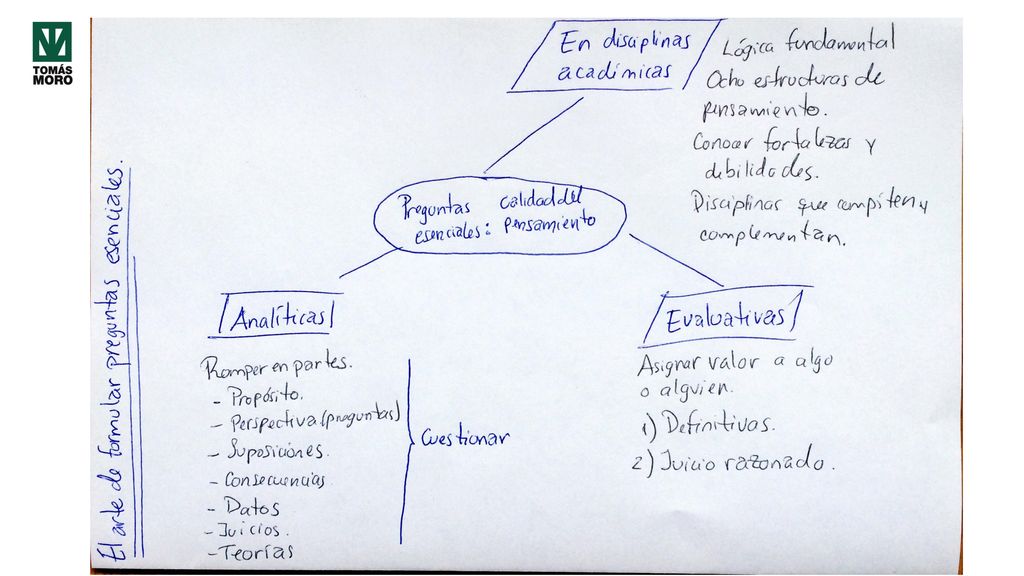 TOMÁS
MORO
El arte de formular preguntas esenciales.
En disciplinas
académicas
Lógica fundamental
Ocho estructuras de
pensamiento.
Conocer fortalezas y
debilidades.
Disciplinas que compiten y
complementan.
Preguntas calidad del
esenciales: pensamiento
Analíticas
Romper en partes.
- Propósito.
- Perspectiva (preguntas)
- Suposiciones.
- Consecuencias
- Datos
- Juicios.
- Teorías
Cuestionar
Evaluativas
Asignar valor a algo
o alguien.
1) Definitivas.
2) Juicio razonado.